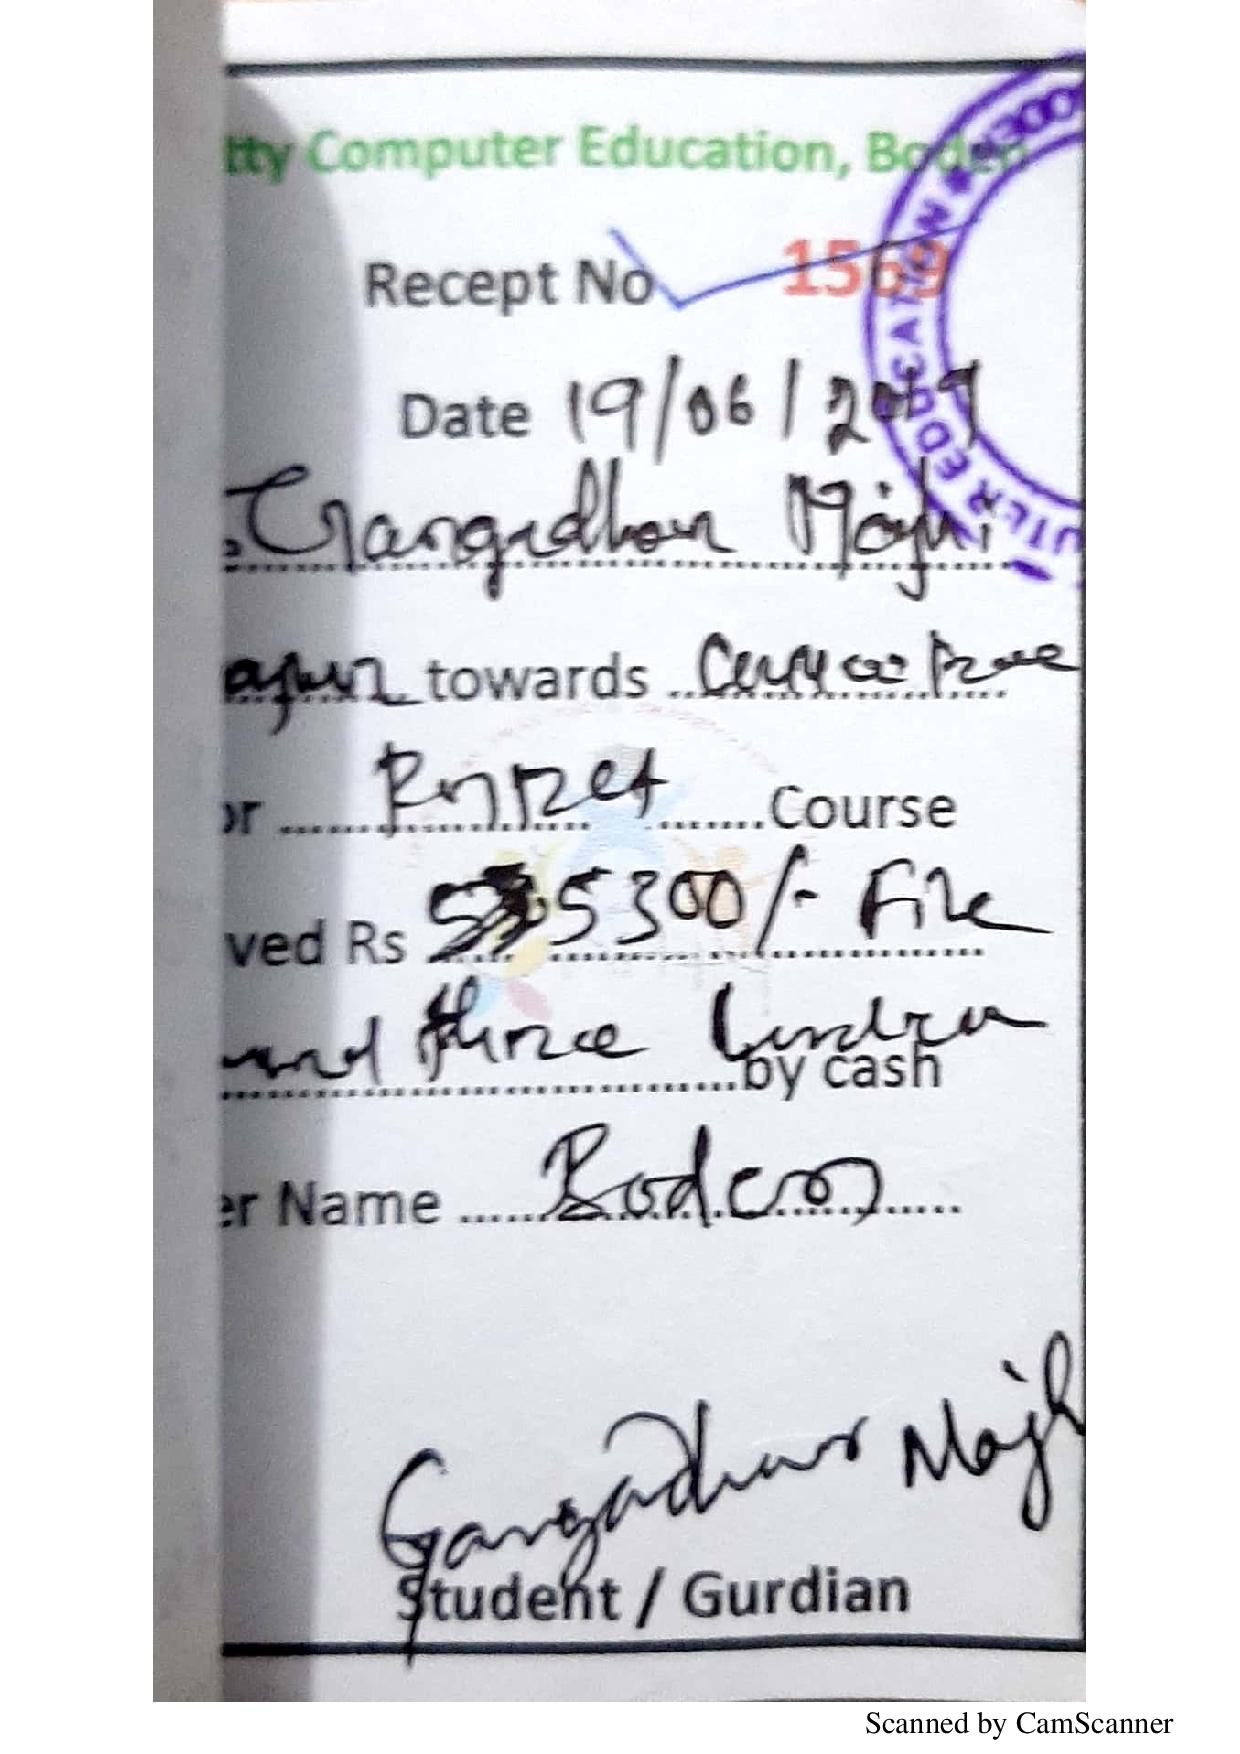 tty Computer Education, Boden
Recept No 1569
Date 19/06/2019
Gangadhar Majhi
towards
or Course
ved Rs 5300/- Five
and three hundred
by cash
er Name Boden
Gangadhar Majh
Student / Gurdian
Scanned by CamScanner